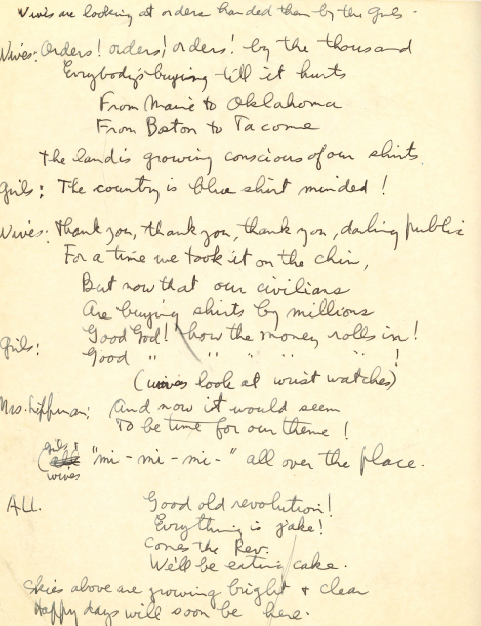 Wives are looking at orders handed them by the Girls.
Wives: Orders! orders! orders! by the thousand
Everybody's buying till it hurts
From Maine to Oklahoma
From Boston to Tacoma
The land is growing conscious of our shirts.
Girls: The country is blue shirt minded!
Wives: Thank you, thank you, thank you, darling public
For a time we took it on the chin,
But now that our civilians
Are buying shirts by millions
Good God! how the money rolls in!
Girls: Good " " " " " !
(wives look at wrist watches)
Mrs. Lippman: And now it would seem
To be time for our theme!
(girls & wives "mi - mi - mi -" all over the place.
ALL. Good old revolution!
Everything is jake!
Comes the Rev.
We'll be eating cake.
Skies above are growing bright & clear
Happy days will soon be here.